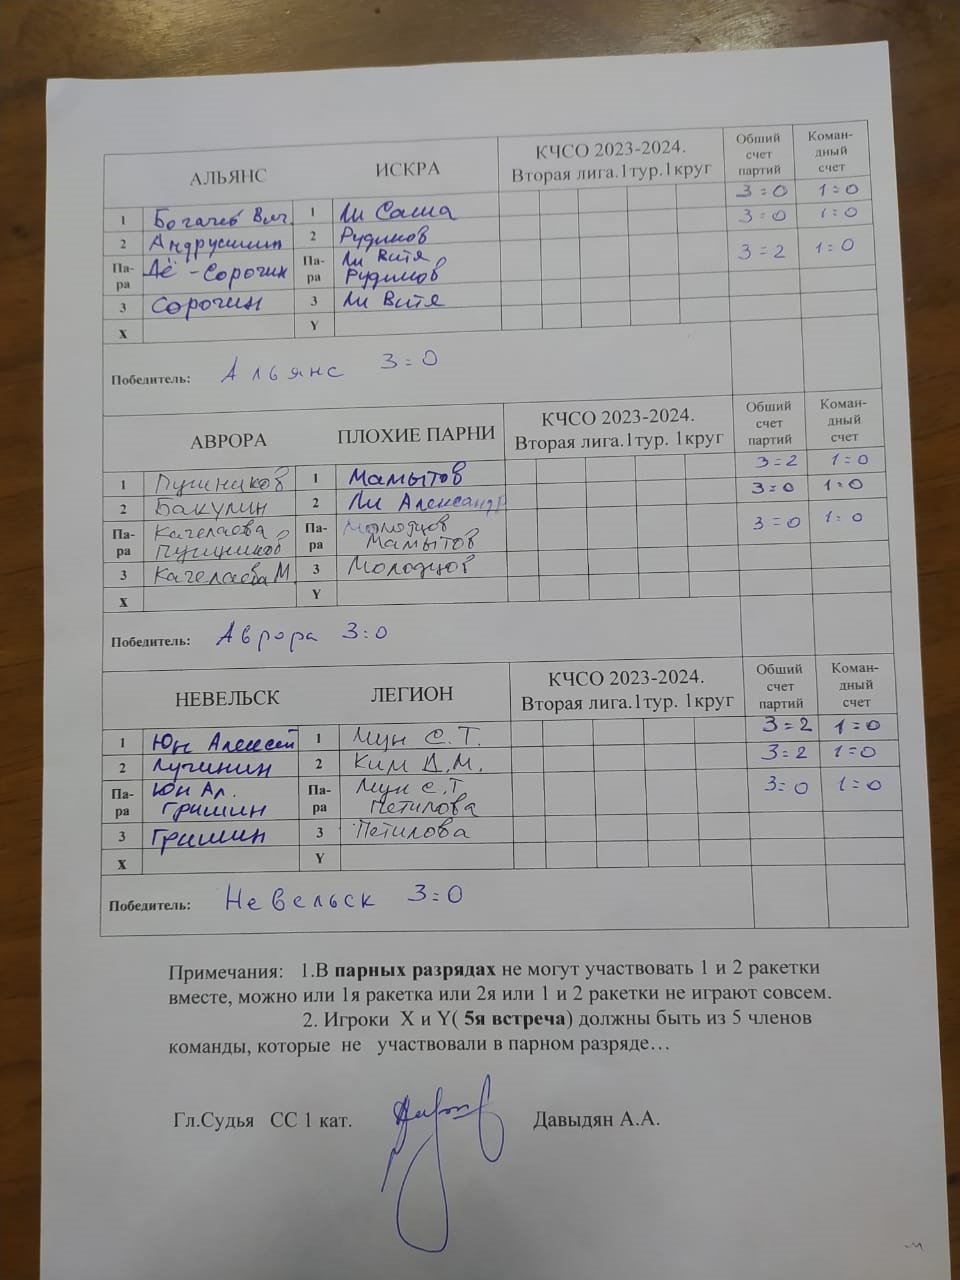 АЛЬЯНС ИСКРА КЧСО 2023-2024. Вторая лига.1тур.1круг Общий счет партий Коман-дный счет
1 Богачев Вяч. 1 Ли Саша 3=0 1=0
2 Андрусишин 2 Рудиков 3=0 1=0
Па-ра Дё -Сорочин Па-ра Ли Витя Рудиков 3=2 1=0
3 Сорочин 3 Ли Витя
X Y
Победитель: Альянс 3=0
АВРОРА ПЛОХИЕ ПАРНИ КЧСО 2023-2024. Вторая лига.1тур. 1круг Общий счет партий Коман-дный счет
1 Пушников 1 Мамытов 3=2 1=0
2 Бакулин 2 Ли Александр 3=0 1=0
Па-ра Качелаева Па-ра Молодцов Мамытов 3=0 1=0
3 Качелаева М 3 Молодцов
X Y
Победитель: Аврора 3:0
НЕВЕЛЬСК ЛЕГИОН КЧСО 2023-2024. Вторая лига.1тур. 1круг Общий счет партий Коман-дный счет
1 Юн Алексей 1 Мун С.Т. 3=2 1=0
2 Лучинин 2 Ким Д.М. 3=2 1=0
Па-ра Юн Ал. Гришин Па-ра Мун С.Т Петилова 3=0 1=0
3 Гришин 3 Петилова
X Y
Победитель: Невельск 3=0
Примечания: 1.В парных разрядах не могут участвовать 1 и 2 ракетки
вместе, можно или 1я ракетка или 2я или 1 и 2 ракетки не играют совсем.
2. Игроки X и Y( 5я встреча) должны быть из 5 членов
команды, которые не участвовали в парном разряде…
Гл.Судья СС 1 кат. Давыдян А.А.